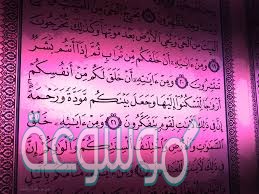 ٱلْمَيِّتَ مِنَ ٱلْحَيِّ وَيُحْيِ ٱلْأَرْضَ بَعْدَ مَوْتِهَا وَكَذَٰلِكَ تُخْرَجُونَ
وَمِنْ ءَايَٰتِهِۦٓ أَنْ خَلَقَكُم مِّن تُرَابٍ ثُمَّ إِذَآ أَنتُم بَشَرٌ
تَنتَشِرُونَ ٢٠ وَمِنْ ءَايَٰتِهِۦٓ أَنْ خَلَقَ لَكُم مِّنْ أَنفُسِكُمْ
أَزْوَٰجًا لِّتَسْكُنُوٓا۟ إِلَيْهَا وَجَعَلَ بَيْنَكُم مَّوَدَّةً وَرَحْمَةً
إِنَّ فِي ذَٰلِكَ لَءَايَٰتٍ لِّقَوْمٍ يَتَفَكَّرُونَ ٢١ وَمِنْ ءَايَٰتِهِۦ
وَأَلْوَٰنِكُمْ إِنَّ
موسوعة